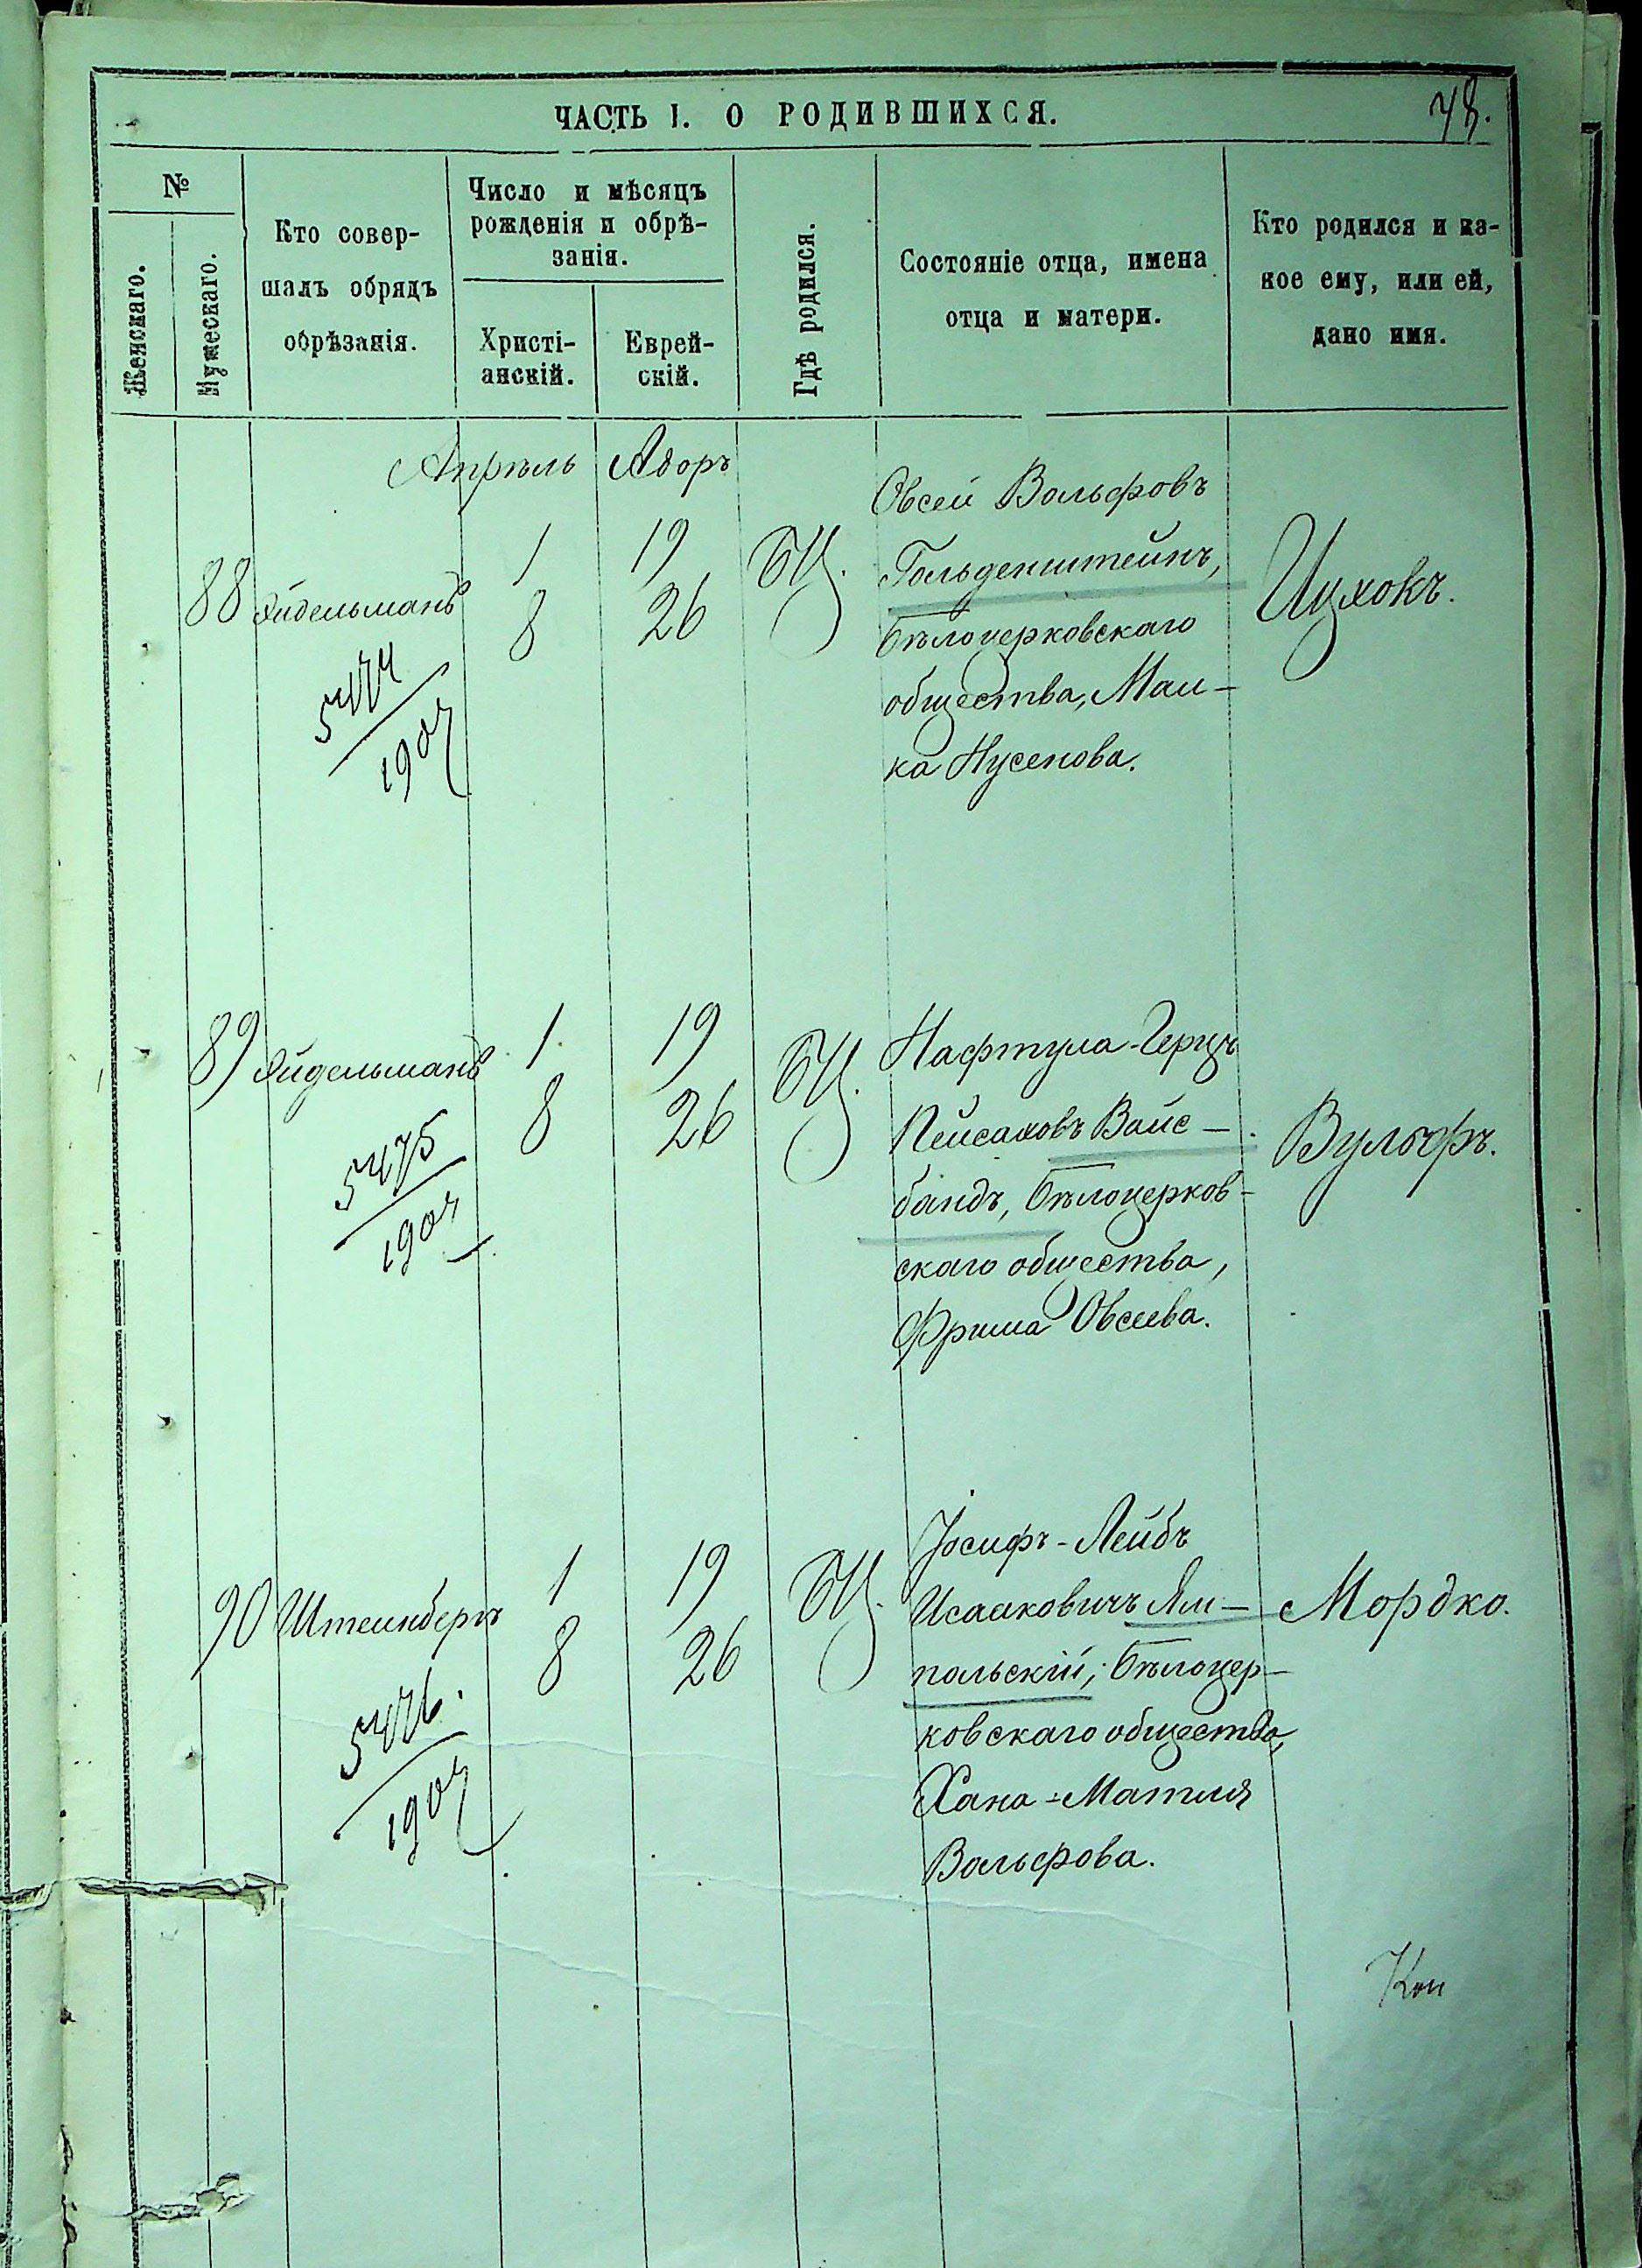 ЧАСТЬ I. О РОДИВШИХСЯ.
№
Женскаго.
Мужескаго.
Кто совер-
шалъ обрядъ
обрѣзанія.
Число и мѣсяцъ
рожденія и обрѣ-
занія.
Христі-
анскій.
Еврей-
скій.
Гдѣ родился.
Состояніе отца, имена
отца и матери.
Кто родился и ка-
кое ему, или ей,
дано имя.
Апрѣль Адоръ
88 Эйдельманъ
1 19
8 26
БЦ.
Овсей Вольфовъ
Гольденштейнъ,
Бѣлоцерковскаго
общества, Мал-
ка Нусенова.
Ицхокъ.
5474
1904
89 Эйдельманъ
1. 19
8 26
БЦ.
Нафтула-Герцъ
Пейсаховъ Вайс-
бандъ, Бѣлоцерков-
скаго общества,
Фрима Овсеева.
Вульфъ.
5475
1904
90 Штейнбергъ
1 19
8 26
БЦ.
Іосифъ-Лейбъ
Исааковичъ Ям-
польскій, Бѣлоцер-
ковскаго общества,
Хана-Матля
Вольфова.
Мордко.
5476.
1904